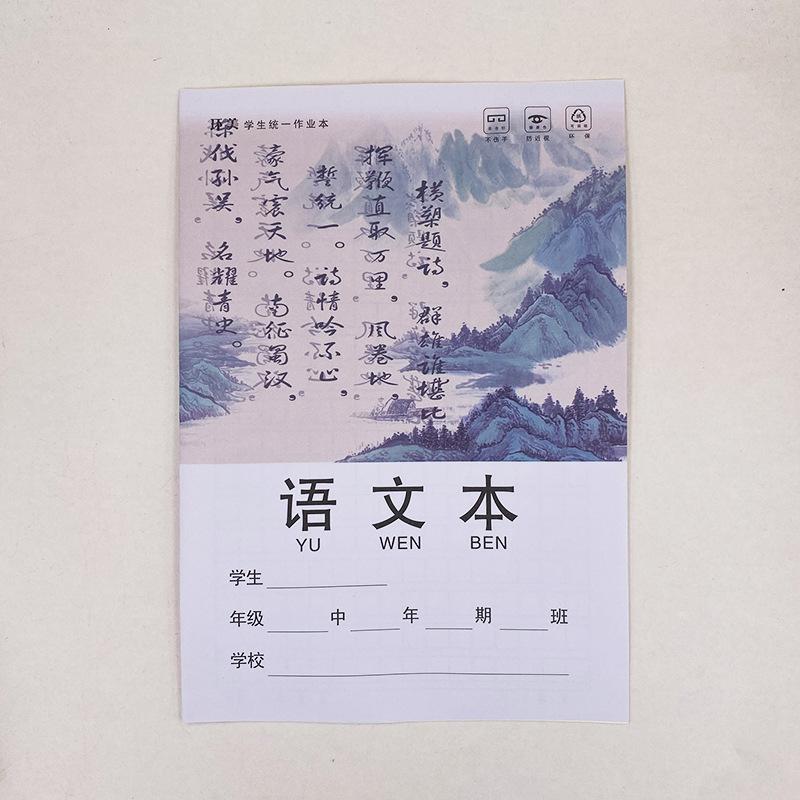 环美 学生统一作业本
不伤手 防近视 环保
横槊题诗，群雄谁堪比
挥鞭直取万里，风卷地，
誓统一。诗情吟不尽，
豪气震天地。南征蜀汉，
东伐孙吴，名耀青史。
语文本
YU WEN BEN
学生
年级 中 年 期 班
学校